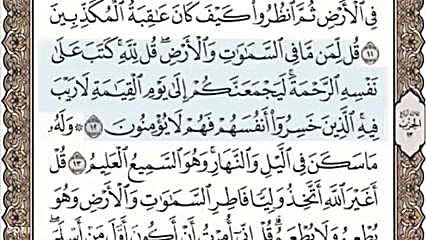 فِي ٱلْأَرْضِ ثُمَّ ٱنظُرُوا۟ كَيْفَ كَانَ عَٰقِبَةُ ٱلْمُكَذِّبِينَ
١١ قُل لِّمَن مَّا فِي ٱلسَّمَٰوَٰتِ وَٱلْأَرْضِ ۖ قُل لِّلَّهِ ۚ كَتَبَ عَلَىٰ
نَفْسِهِ ٱلرَّحْمَةَ ۚ لَيَجْمَعَنَّكُمْ إِلَىٰ يَوْمِ ٱلْقِيَٰمَةِ لَا رَيْبَ
فِيهِ ۚ ٱلَّذِينَ خَسِرُوٓا۟ أَنفُسَهُمْ فَهُمْ لَا يُؤْمِنُونَ ١٢ ۞ وَلَهُۥ
مَا سَكَنَ فِي ٱلَّيْلِ وَٱلنَّهَارِ ۚ وَهُوَ ٱلسَّمِيعُ ٱلْعَلِيمُ ١٣ قُلْ
أَغَيْرَ ٱللَّهِ أَتَّخِذُ وَلِيًّا فَاطِرِ ٱلسَّمَٰوَٰتِ وَٱلْأَرْضِ وَهُوَ
يُطْعِمُ وَلَا يُطْعَمُ ۗ قُلْ إِنِّيٓ أُمِرْتُ أَنْ أَكُونَ أَوَّلَ مَنْ أَسْلَمَ ۖ